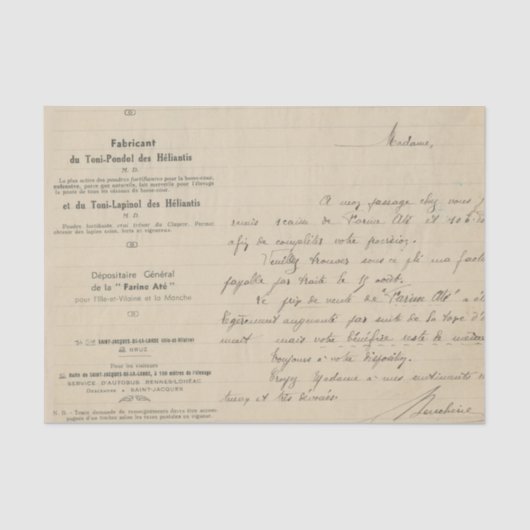 Fabricant
du Toni-Pondol des Héliantis
M. D.
La plus active des poudres fortifiantes pour la basse-cour,
parce que naturels, fait merveille pour l'élevage
la ponte de tous les oiseaux de basse-cour.
et du Toni-Lapinol des Héliantis
M. D.
Poudre fortifiante, vrai trésor du Clapier. Permet
obtenir des lapins sains, forts et vigoureux.
Dépositaire Général
de la " Farine Até "
pour l'Ille-et-Vilaine et la Manche
SAINT-JACQUES-DE-LA-LANDE (Ille-et-Vilaine)
BRUZ
Pour les visiteurs
Halte de SAINT-JACQUES-DE-LA-LANDE, à 150 mètres de l'élevage
SERVICE D'AUTOBUS RENNES-LOHÉAC
Descendre SAINT-JACQUES
N. B. - Toute demande de renseignements devra être accom-
pagnée d'un timbre selon les taxes postales en vigueur.
Madame,
A mon passage chez vous j'
remis 1 caisse de Farine Até et 10 b.
afin de compléter votre provision.
Veuillez trouver sous ce pli ma fact
payable par traite le 15 août.
Le prix de vente de "Farine Até" a été
légèrement augmenté par suite de la taxe d'
mais votre bénéfice reste le même
toujours à votre
Croyez Madame à mes sentiments
et très dévoués.